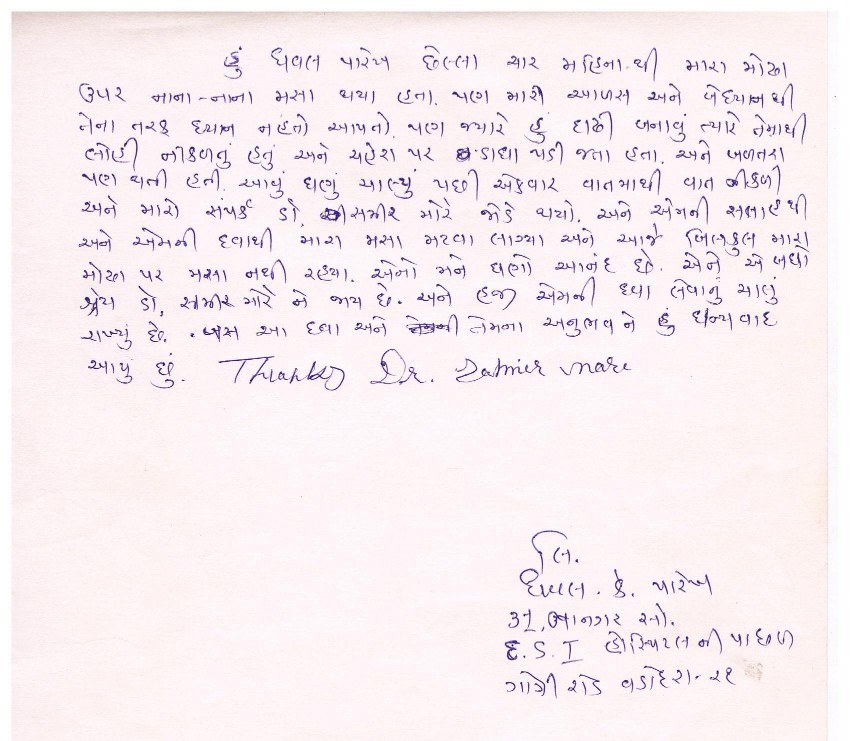 હું ધવલ પારેખ છેલ્લા ચાર મહિના થી મારા મોઢા
ઉપર નાના-નાના મસા થયા હતા. પણ મારી આળસ અને બેધ્યાન થી
તેના તરફ ધ્યાન નહતો આપતો. પણ જ્યારે હું દાઢી બનાવું ત્યારે તેમાથી
લોહી નીકળતું હતું અને ચહેરા પર ડાઘા પડી જતા હતા. અને બળતરા
પણ થતી હતી. આવું ઘણું ચાલ્યું પછી એકવાર વાતમાથી વાત નીકળી
અને મારો સંપર્ક ડો. સમીર મોરે જોડે થયો. અને એમની સલાહથી
અને એમની દવાથી મારા મસા મટવા લાગ્યા અને આજે બિલકુલ મારા
મોઢા પર મસા નથી રહયા. એનો મને ઘણો આનંદ છે. અને એ બધો
શ્રેય ડો. સમીર મોરે ને જાય છે. અને હજી એમની દવા લેવાનું ચાલું
રાખ્યું છે. બસ આ દવા અને તેમના અનુભવ ને હું ધન્યવાદ
આપું છું. Thanks Dr. Samier more
લિ.
ધવલ. કે. પારેખ
નગર સો.
E.S.I હોસ્પિટલ ની પાછળ
ગોત્રી રોડ વડોદરા-૨૧